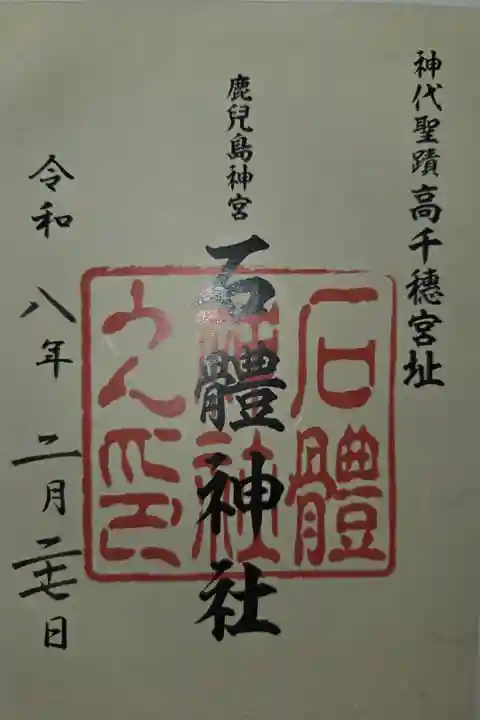 神代聖蹟高千穂宮址
鹿兒島神宮
石體神社
令和八年二月二十七日
石體
神社
之印